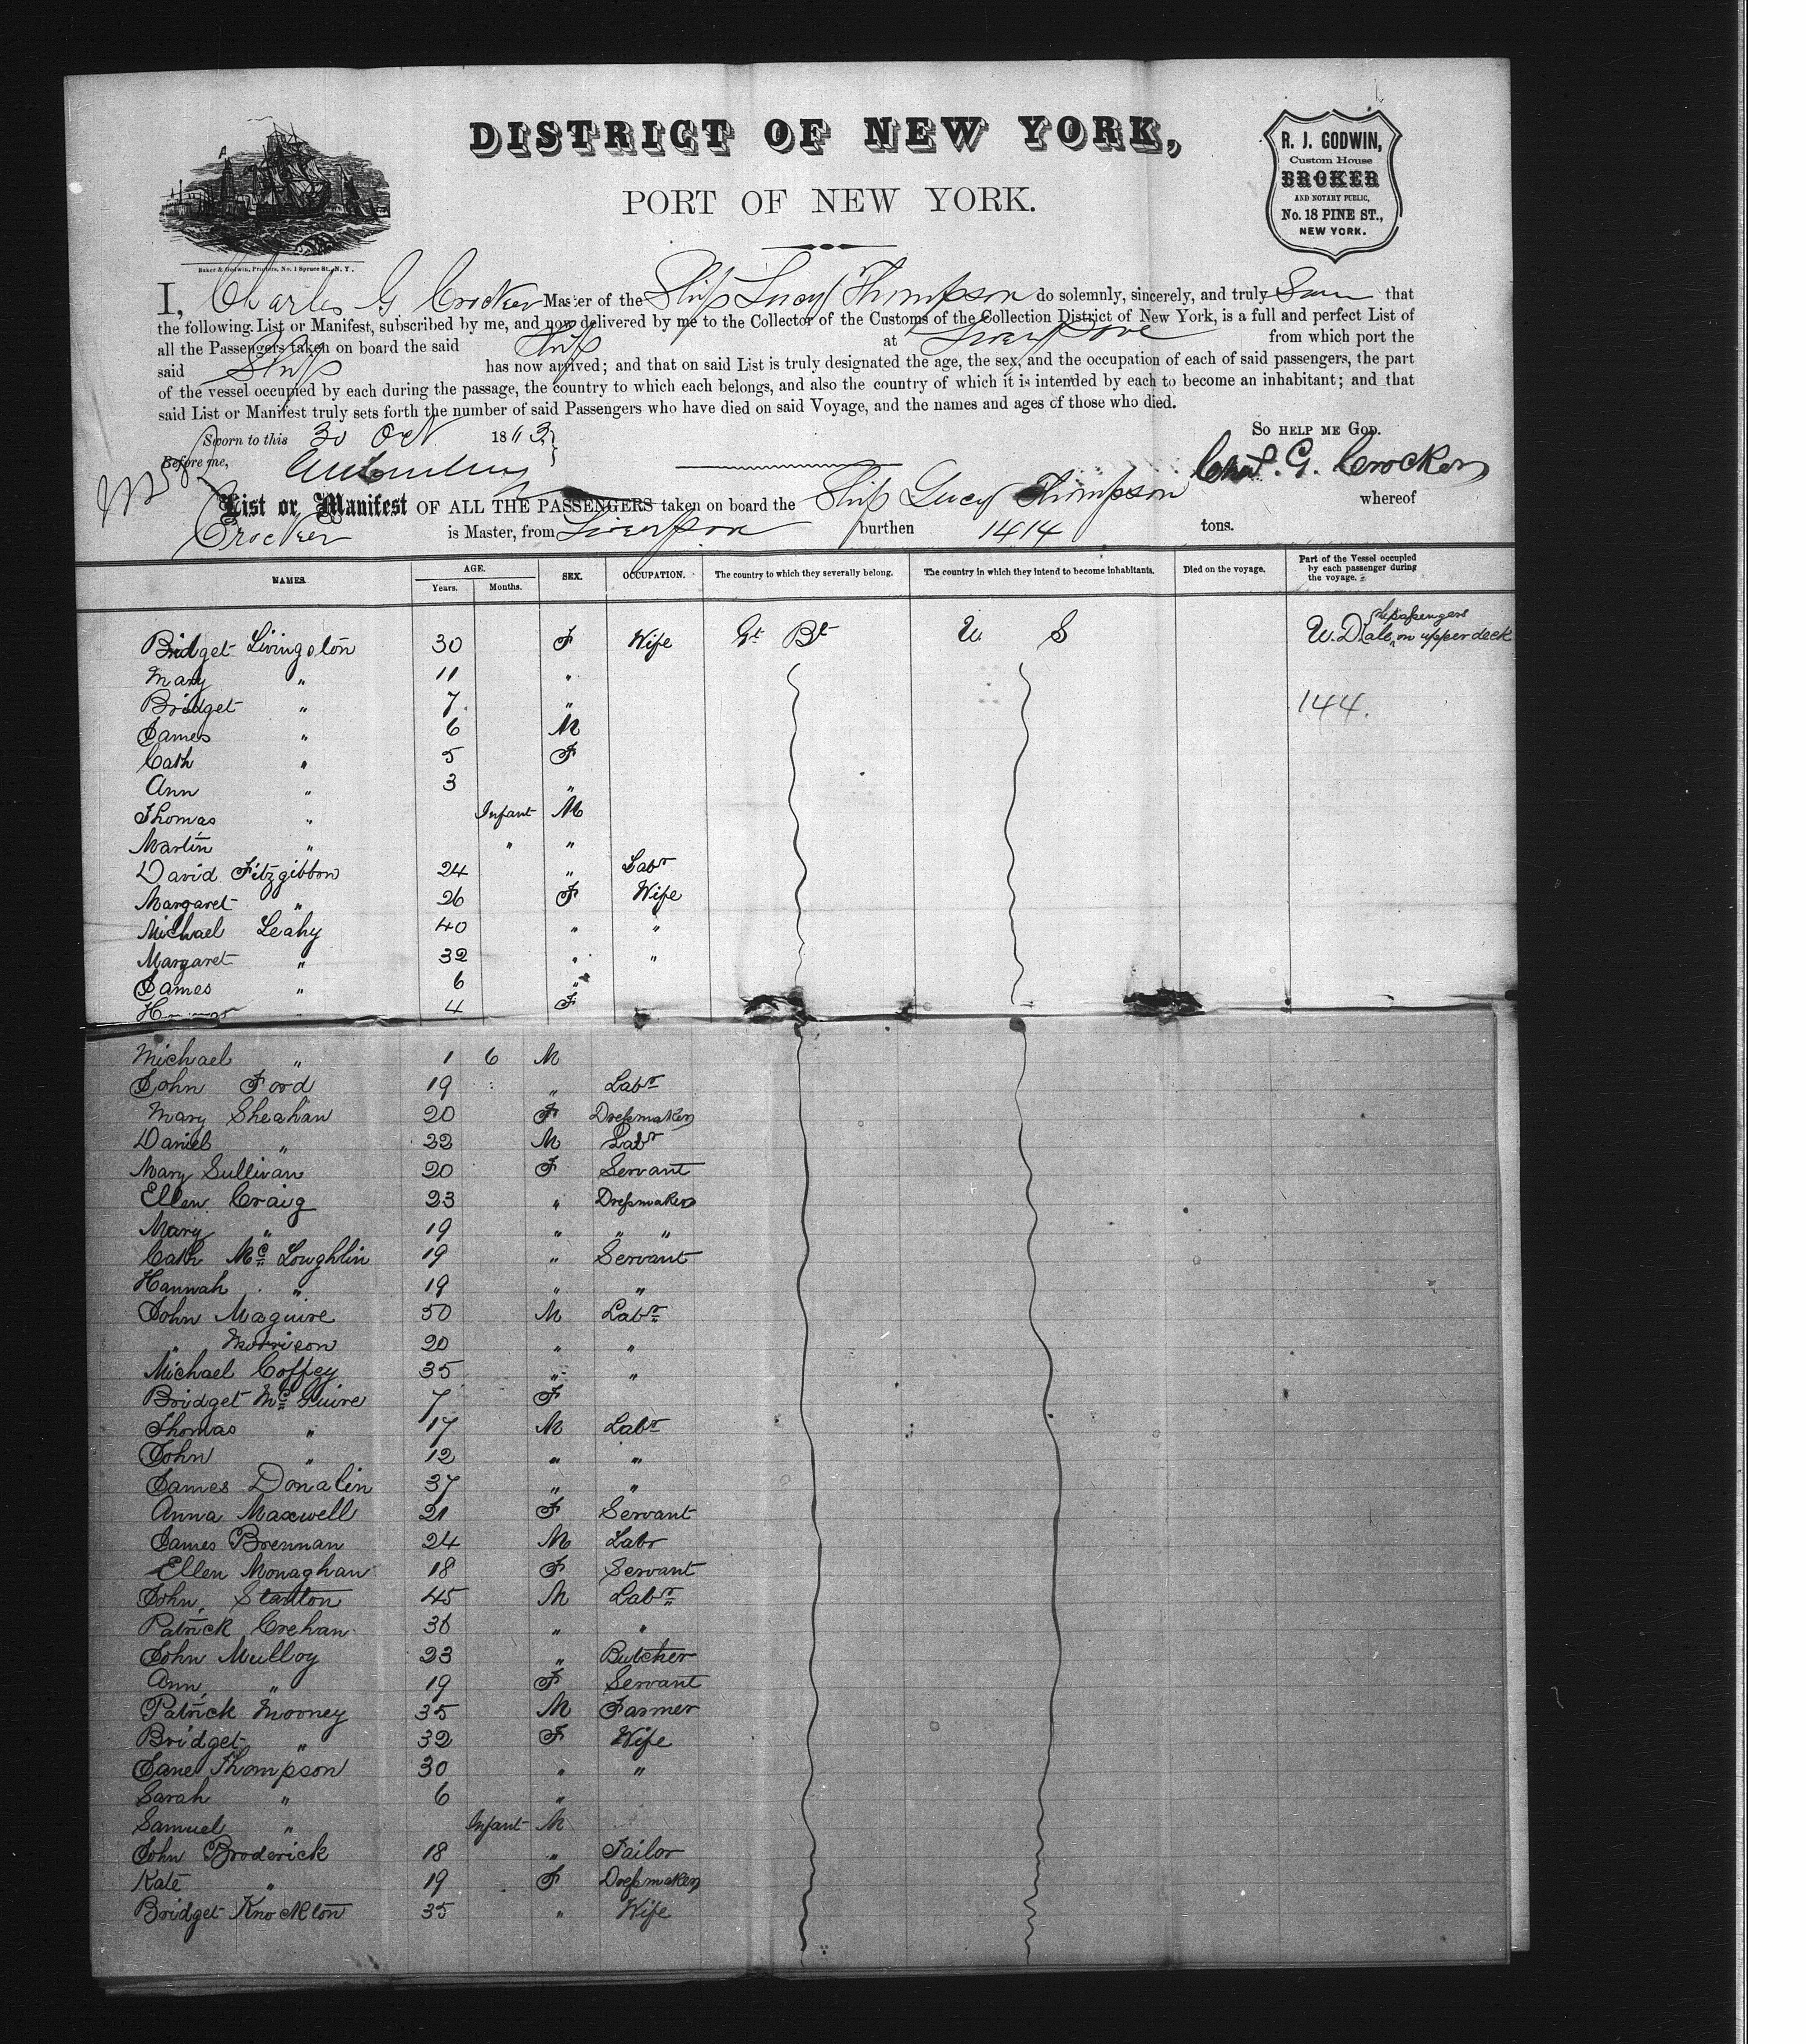 DISTRICT OF NEW YORK,
PORT OF NEW YORK.
Baker & Godwin, Printers, No. 1 Spruce St., N. Y.
R. J. GODWIN,
Custom House
BROKER
AND NOTARY PUBLIC,
No. 18 PINE ST.,
NEW YORK.
I, Charles G Crocker Master of the Ship Lucy Thompson do solemnly, sincerely, and truly that
the following List or Manifest, subscribed by me, and now delivered by me to the Collector of the Customs of the Collection District of New York, is a full and perfect List of
all the Passengers taken on board the said Ship at from which port the
said Ship has now arrived; and that on said List is truly designated the age, the sex, and the occupation of each of said passengers, the part
of the vessel occupied by each during the passage, the country to which each belongs, and also the country of which it is intended by each to become an inhabitant; and that
said List or Manifest truly sets forth the number of said Passengers who have died on said Voyage, and the names and ages of those who died.
Sworn to this 30 Oct 1863 So HELP ME GOD.
Before me, Chas. G. Crocker
List or Manifest OF ALL THE PASSENGERS taken on board the Ship Lucy Thompson whereof
Crocker is Master, from burthen 1414 tons.
NAMES. AGE. Years. Months. SEX. OCCUPATION. The country to which they severally belong. The country in which they intend to become inhabitants. Died on the voyage. Part of the Vessel occupied by each passenger during the voyage.
Bridget Livingston 30 F Wife Gt Bt U S on upper deck
Mary " 11 "
Bridget " 7 " 144.
James " 6 M
Cath " 5 F
Ann " 3 "
Thomas " Infant M
Martin " " "
David Fitzgibbon 24 " Labr
Margaret " 26 F Wife
Michael Leahy 40 " "
Margaret " 32 " "
James " 6 "
4 F
Michael " 1 6 M
John Ford 19 " Labr
Mary Sheahan 20 F Dressmaker
Daniel " 22 M Labr
Mary Sullivan 20 F Servant
Ellen Craig 23 " Dressmaker
Mary " 19 " " "
Cath Mc Loughlin 19 " Servant
Hannah " 19 " "
John Maguire 50 M Labr
" Morrison 20 " "
Michael Coffey 35 " "
Bridget Mc Guire 7 F
Thomas " 17 M Labr
John " 12 " "
James Donalin 37 " "
Anna Maxwell 21 F Servant
James Brennan 24 M Labr
Ellen Monaghan 18 F Servant
John Stanton 45 M Labr
Patrick Crehan 36 " "
John Mulloy 23 " Butcher
Ann " 19 F Servant
Patrick Mooney 35 M Farmer
Bridget " 32 F Wife
Jane Thompson 30 " "
Sarah " 6 "
Samuel " Infant M
John Broderick 18 " Tailor
Kate " 19 F Dressmaker
Bridget Knockton 35 " Wife